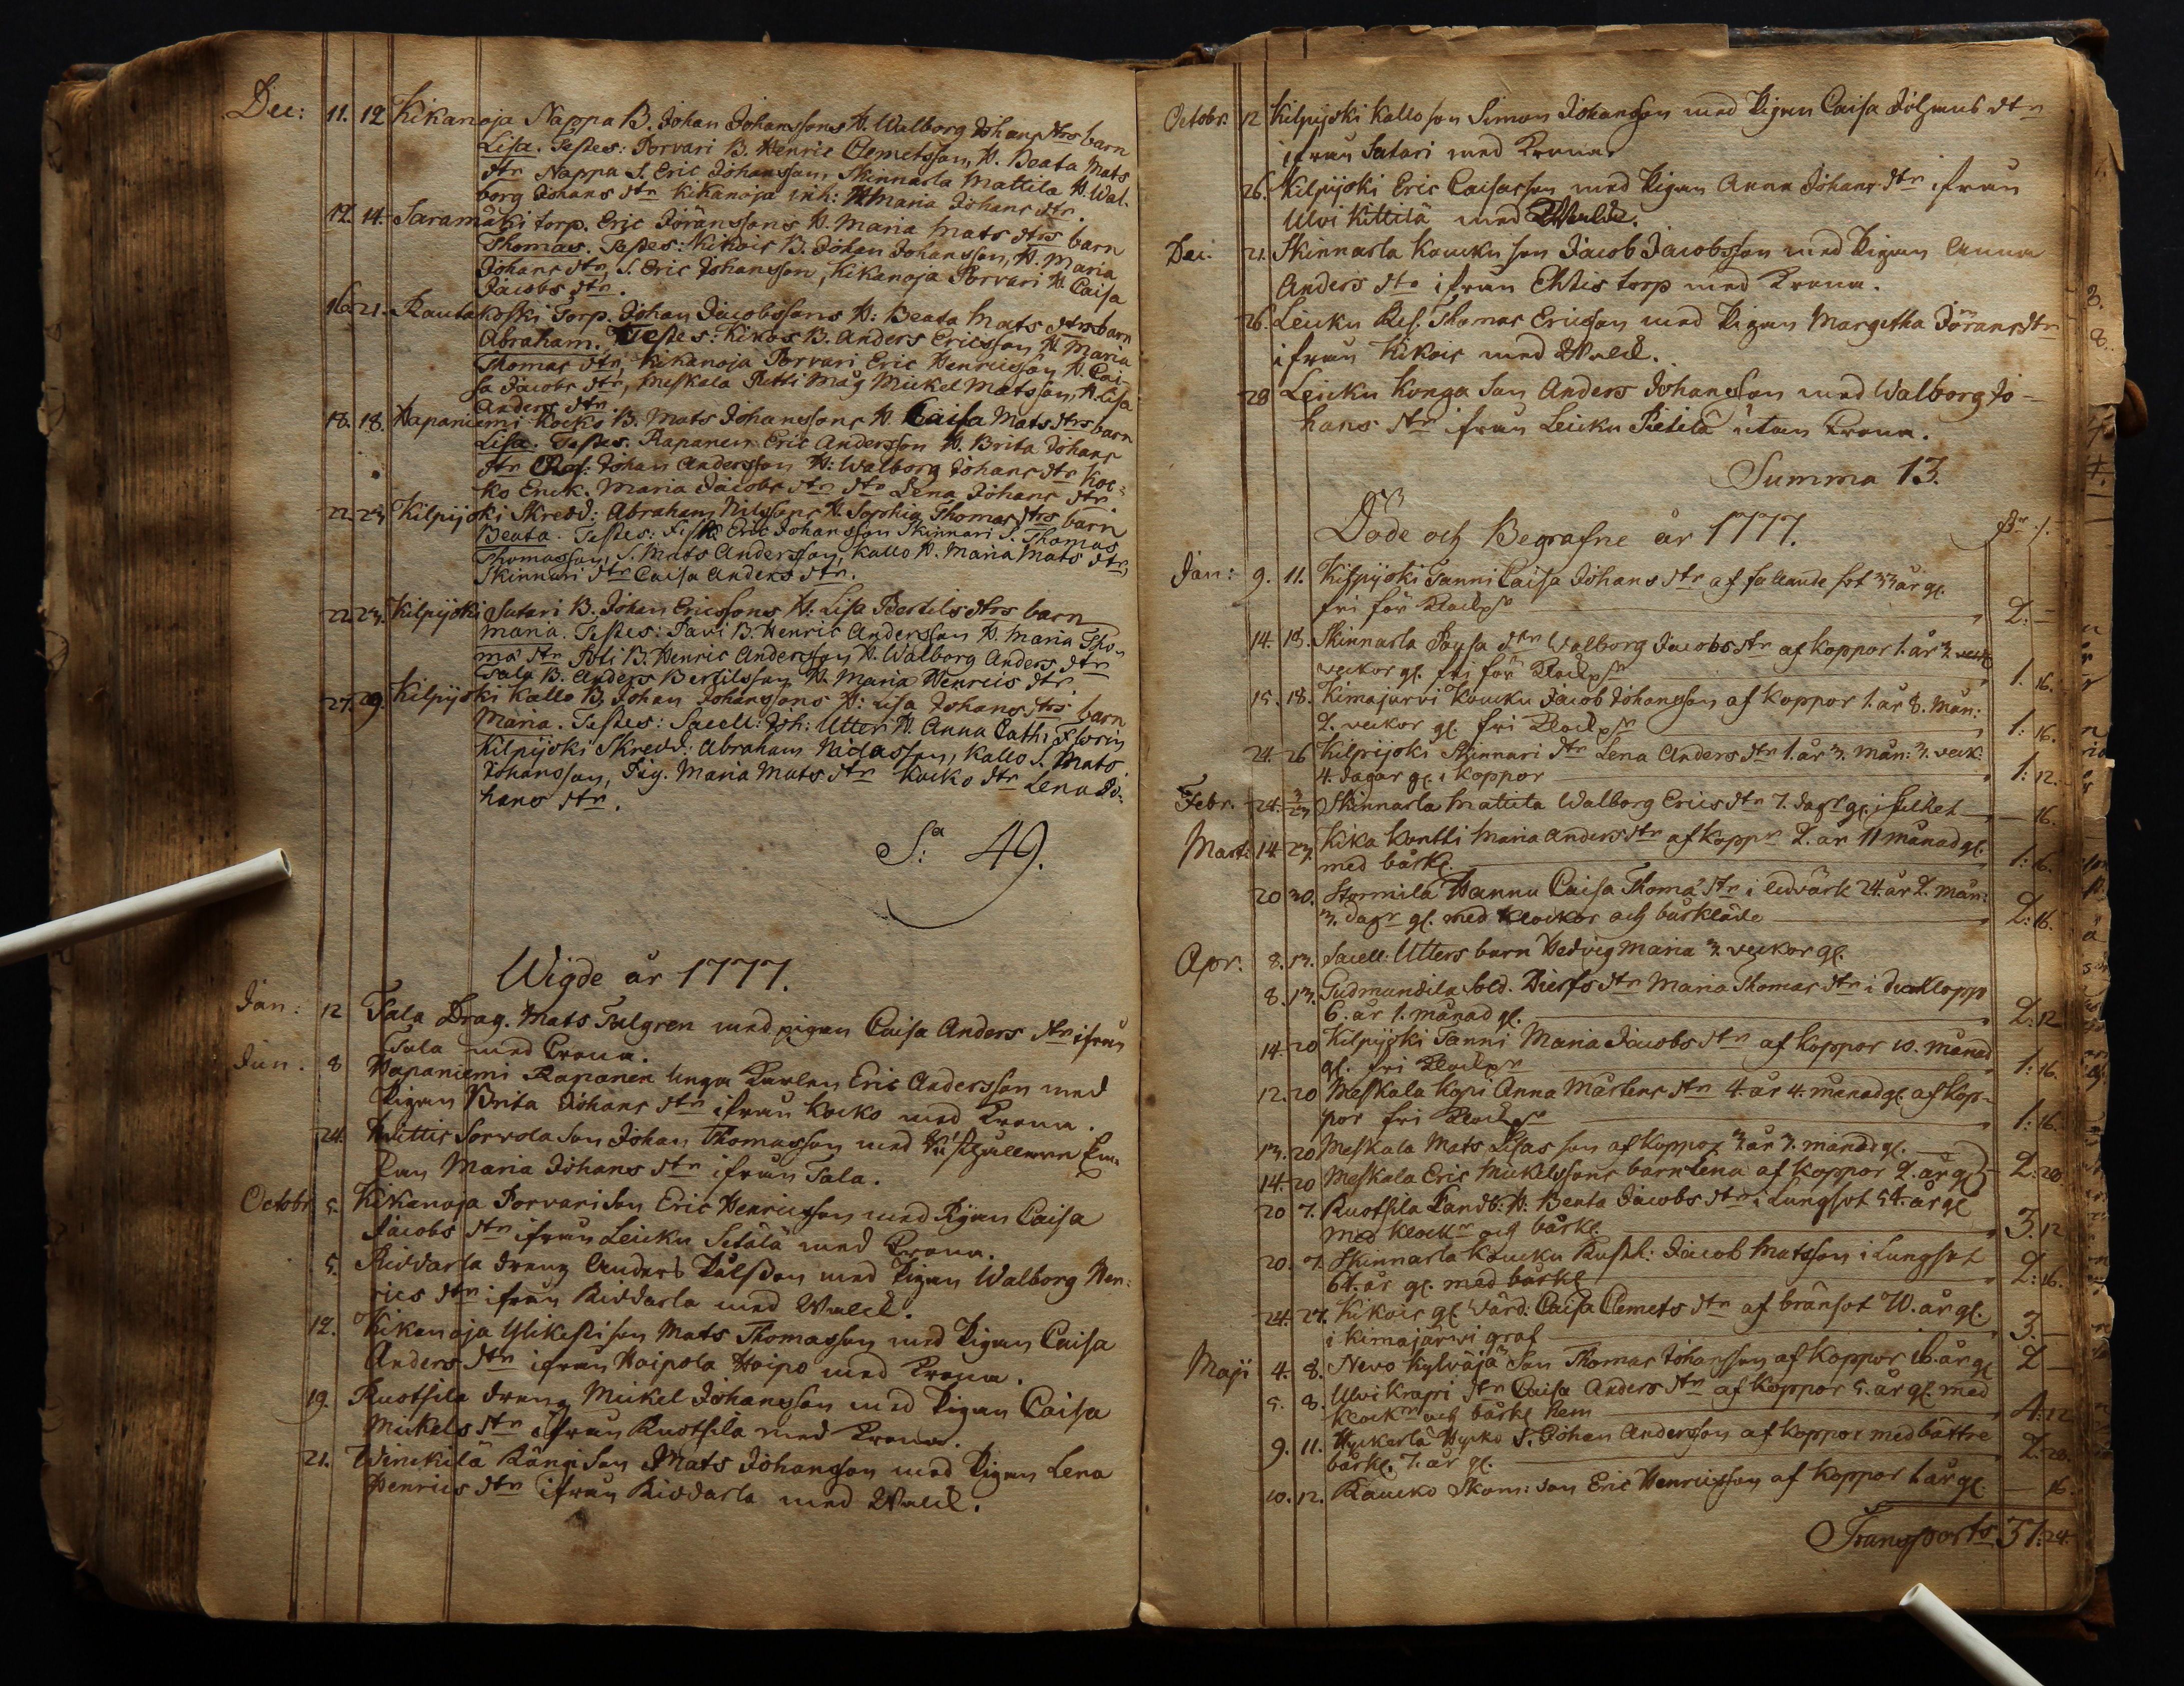 Dec: 11. 12 Kikanoja Nappa B. Johan Johanssons H. Walborg Johans dtrs barn
Lisa. Testes: Porvari B. Henric Clemetsson, H. Beata Mats
dtr Nappa S. Eric Johansson, Skinnarla Mattila H. Wal-
borg Johans dtr Kikanoja inh: H Maria Johans dtr.
12. 14. Saramäki torp. Eric Jöranssons H. Maria Mats dtrs barn
Thomas. Testes: Kikois B. Johan Johansson, H. Maria
Johans dtr, S. Eric Johansson, Kikanoja Porvari H Caisa
Jacobs dtr.
16. 21. Rautakoski Torp. Johan Jacobssons H: Beata Mats dtrs barn
Abraham. Testes: Kikois B. Anders Ericsson H Maria
Thomas dtr, Kikanoja Porvari Eric Henricsson H. Cai-
sa Jacobs dtr, Meskala Petti Måg Mickel Matsson, H. Lisa
Anders dtr.
18. 18. Hapaniemi Kocko B. Mats Johanssons H Caisa Mats dtrs barn
Lisa. Testes. Rapanein Eric Andersson H. Brita Johans
dtr Johan Andersson H: Walborg Johans dtr Koc-
ko Enck. Maria Jacobs dtr dtr Lena Johans dtr
22. 23 Kilpijoki Skredd: Abraham Nilssons H. Sophia Thomas dtrs barn
Beata. Testes: Eric Johansson Skinnari S. Thomas
Thomasson, S. Mats Andersson, Kallo H. Maria Mats dtr,
Skinnari dtr Caisa Anders dtr.
22. 23. Kilpijoki Sutari B. Johan Ericssons H: Lisa Bertils dtrs barn
Maria. Testes: Pavi B. Henric Andersson H. Maria Tho-
mæ dtr Poli B. Henric Andersson H. Walborg Anders dtr
Tala B. Anders Bertilsson H. Maria Henrics dtr.
27. 29. Kilpijoki Kallo B. Johan Johanssons H: Lisa Johans dtrs barn
Maria. Testes: Sacell: Joh: Utter H. Anna Cath: Florin
Kilpijoki Skredd: Abraham Niclasson, Kallo S. Mats
Johansson, Pig. Maria Mats dtr Kocko dtr Lena Jo-
hans dtr.
S:a 49.
Wigde år 1777.
Jan: 12 Tala Drag. Mats Talgren med pigan Caisa Anders dtr ifrån
Tala med Crona.
Jun. 8 Hapaniemi Rapanen unga Karlen Eric Andersson med
Pigan Brita Johans dtr ifrån Kocko med Crona.
24. Sorvola son Johan Thomasson med
Maria Johans dtr ifrån Tala.
Octobr 5. Kikanoja Porvari son Eric Henricsson med Pigan Caisa
Jacobs dtr ifrån Leicku Setälä med Crona.
5. Riddarla dreng Anders Pålsson med Pigan Walborg Hen-
rics dtr ifrån Riddarla med Walck.
12. Kikanoja Ylikesti son Mats Thomasson med Pigan Caisa
Anders dtr ifrån Haipola Haipo med Crona.
19. Ruotsila dreng Mickel Johansson med Pigan Caisa
Mickels dtr ifrån Ruotsila med Crona.
21. Winckilä Kångi son Mats Johansson med Pigan Lena
Henrics dtr ifrån Riddarla med Walck.
Octobr. 12 Kilpijoki Kallo son Simon Johansson med Pigan Caisa Johans dtr
ifrån Sutari med Crona.
26. Kilpijoki Eric Caisasson med Pigan Anna Johans dtr ifrån
Ulvi Kittilä med Walck.
Dec. 21. Skinnarla Koucku son Jacob Jacobsson med Pigan Anna
Anders dtr ifrån Ehtis torp med Crona.
26. Leicku Thomas Ericsson med Pigan Margetha Jörans dtr
ifrån Kikois med Walck.
28 Leicku Konga son Anders Johansson med Walborg Jo-
hans dtr ifrån Leicku Pietilä utan Crona.
Summa 13.
Döde och Begrafne år 1777.
Jan: 9. 11. Kilpijoki Tanni Caisa Johans dtr af fallande sot 33 år gl.
fri för 2. —
14. 18. Skinnarla Paysa dtr Walborg Jacobs dtr af koppor 1. år 3
veckor gl. fri för 1. 16.
15. 18. Kimajärvi Koucku Jacob Johansson af koppor 1. år 8. mån:
2. veckor gl. fri 1: 16.
24. 26 Kilpijoki Skinnari dtr Lena Anders dtr 1. år 3. mån: 3. veck:
4. dagar gl. i koppor 1: 12.
Febr. 24. Skinnarla Mattila Walborg Erics dtr 7. dagr gl. i — 16.
Mart: 14. 23. Kika Kontti Maria Anders dtr af koppr 2. år 11 månad gl.
med bårkl. 1: 16.
20 30. Stormila Hannu Caisa Thomæ dtr i ledvärk 24. år 2. mån:
3. dagr gl. med klockor och bårkläde 2: 16.
Apr. 8. 13. Sacell: Utters barn Hedvig Maria 3 veckor gl.
8. 13. Gudmundila Sold. dtr Maria Thomas dtr i
6. år 1. månad gl. 2: 12
14. 20 Kilpijoki Tanni Maria Jacobs dtr af koppor 10. månad
gl. fri 1: 16.
12. 20 Meskala Kopi Anna Mårtens dtr 4. år 4. månad gl. af kop-
por fri 1: 16.
13. 20 Meskala Mats Lisas son af koppor 3 år 3. månad gl.
14. 20 Meskala Eric Mickelssons barn Lena af koppor 2. år gl 2: 20.
20 7. Ruotsila Landb: H. Beata Jacobs dtr i Lungsot 54. år gl
med klockr och bårkl 3. 12
20. 7. Skinnarla Koucku Rusth: Jacob Matsson i Lungsot
64. år gl. med bårkl 2: 16.
24. 27. Kikois gl. Värd: Caisa Clemets dtr af bränsot 70. år gl.
i Kimajärwi graf 3. —
Maji 4. 8. Nevo Kylväjä son Thomas Johansson af koppor 16. år gl 2 —
5. 8. Ulvi Krapri dtr Caisa Anders dtr af koppor 5. år gl. med
klockr och bårkl hem 4: 12
9. 11. Hyckerlä Hycko S. Johan Andersson af koppor med bättre
bårkl. 7. år gl. 2. 20.
10. 12. Raucko Skom: son Eric Henricsson af koppor 1. år gl. — 16.
Transporte 37: 24.